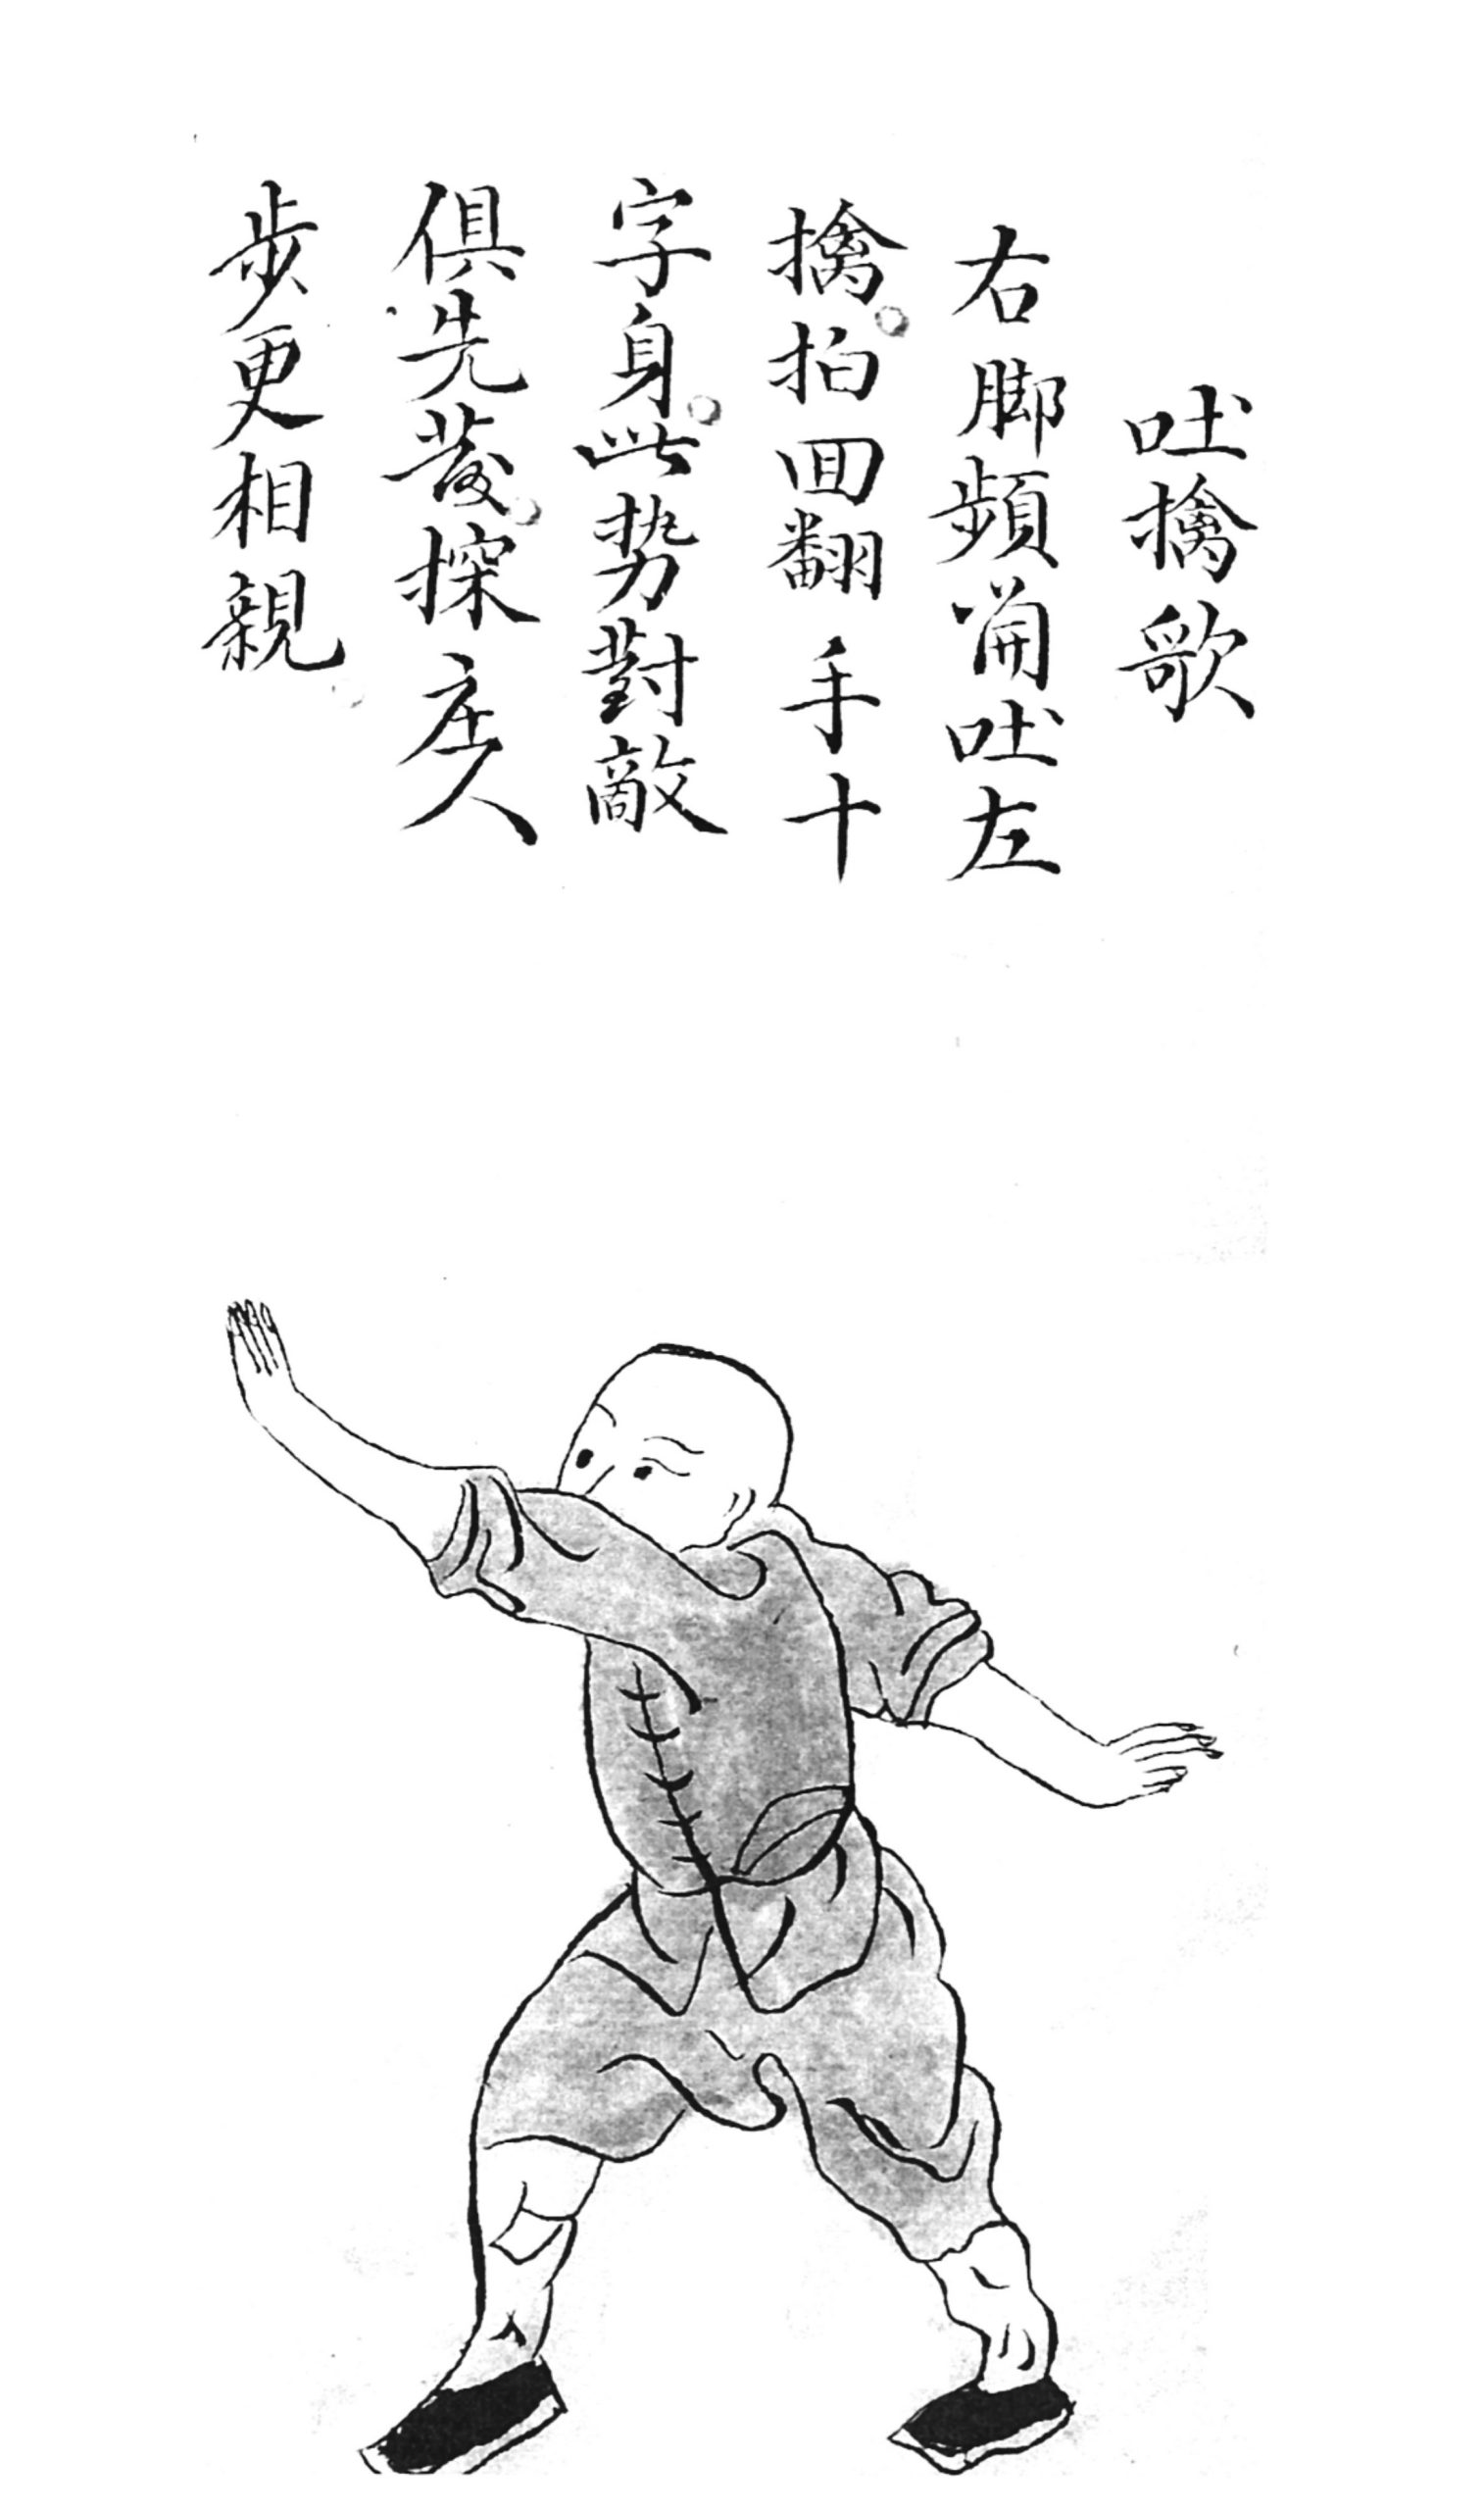 吐擒歌
右脚頻開吐左
擒。拍回翻手十
字身。此势對敵
俱先發。探庄人
步更相親。